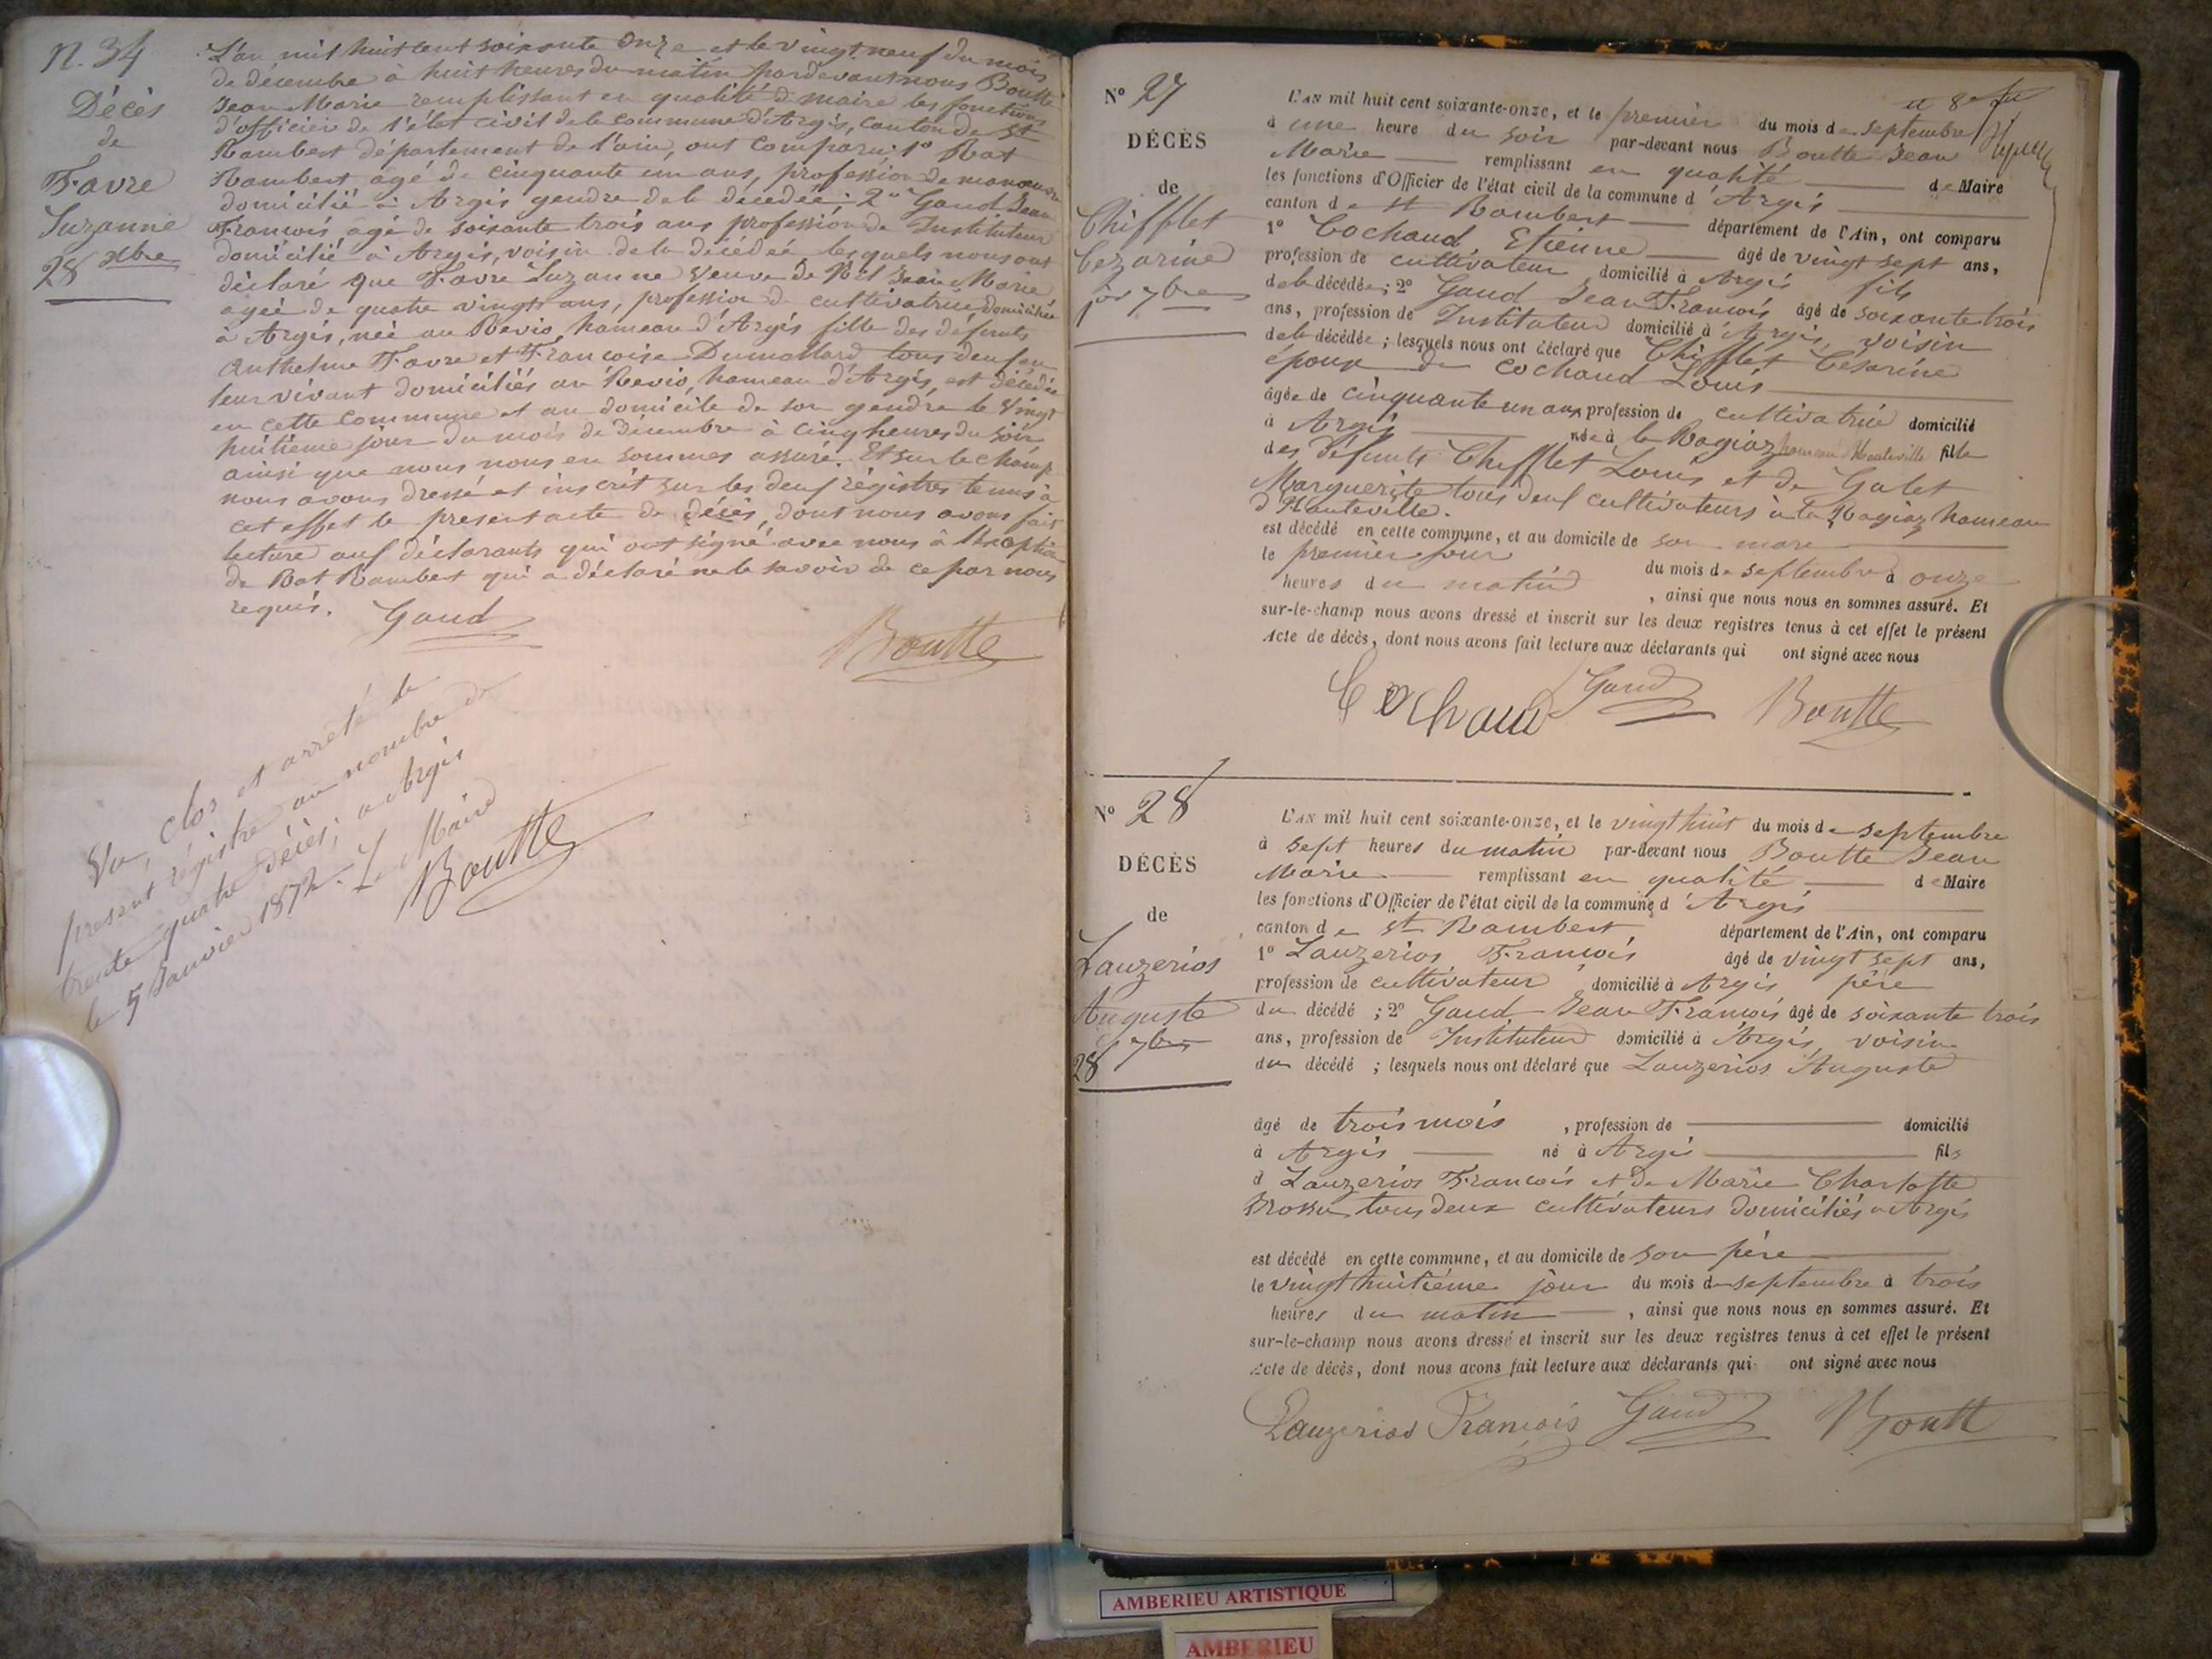 N. 34
Décès
de
Favre
Suzanne
28 xbre
L'an mil huit cent soixante onze et le vingt neuf du mois
de décembre à huit heures du matin pardevant nous Boutte
Jean Marie remplissant en qualité de maire les fonctions
d'officier de l'état civil de la commune d'Argis, canton de St
Rambert département de l'ain, ont comparu; 1º Rat
Rambert agé de cinquante un ans, profession de manœuvre
domicilié à Argis gendre de la décédée; 2º Gaud Jean
François âgé de soixante trois ans profession de Instituteur
domicilié à Argis, voisin de la décédée lesquels nous ont
déclaré que Favre Suzanne veuve de Jean Marie
agée de quatre vingts ans, profession de cultivatrice domiciliée
à Argis, née au Revio, hameau d'Argis fille des défunts
Anthelme Favre et Françoise Dumollard tous deux en
leur vivant domiciliés au Revio, hameau d'Argis, est décédée
en cette commune et au domicile de son gendre le vingt
huitième jour du mois de décembre à cinq heures du soir
ainsi que nous nous en sommes assuré. Et sur le champ
nous avons dressé et inscrit sur les deux régistres tenus à
cet effet le présent acte de décès, dont nous avons fait
lecture aux déclarants qui ont signé avec nous à l'exception
de Rat Rambert qui a déclaré ne le savoir de ce par nous
requis.
Gaud
Boutte
Vu, clos et arrêté le
présent régistre au nombre de
trente quatre décès; à Argis
le 5 Janvier 1872. Le Maire
Boutte
Nº 27
DÉCÈS
de
Chifflet
Cezarine
1er 7bre
L'AN mil huit cent soixante-onze, et le premier du mois de septembre
à une heure du soir par-devant nous Boutte Jean
Marie remplissant en qualité de Maire
les fonctions d'Officier de l'état civil de la commune d'Argis
canton de St Rambert département de l'Ain, ont comparu
1º Cochaud, Etienne âgé de vingt sept ans,
profession de cultivateur domicilié à Argis fils
de la décédée; 2º Gaud Jean François âgé de soixante trois
ans, profession de Instituteur domicilié à Argis, voisin
de la décédée; lesquels nous ont déclaré que Chifflet Césarine
épouse de Cochaud Louis
âgée de cinquante un ans profession de cultivatrice domicilié
à Argis née à la Ragiaz hameau d'Hauteville fille
des défunts Chifflet Louis et de Galet
Marguerite tous deux cultivateurs à la Ragiaz hameau
d'Hauteville.
est décédé en cette commune, et au domicile de son mari
le premier jour du mois de septembre à onze
heures du matin, ainsi que nous nous en sommes assuré. Et
sur-le-champ nous avons dressé et inscrit sur les deux registres tenus à cet effet le présent
Acte de décès, dont nous avons fait lecture aux déclarants qui ont signé avec nous
Cochaud Gaud Boutte
Nº 28
DÉCÈS
de
Lauzerios
Auguste
28 7bre
L'AN mil huit cent soixante-onze, et le vingt huit du mois de septembre
à sept heures du matin par-devant nous Boutte Jean
Marie remplissant en qualité de Maire
les fonctions d'Officier de l'état civil de la commune d'Argis
canton de St Rambert département de l'Ain, ont comparu
1º Lauzerios François âgé de vingt sept ans,
profession de cultivateur domicilié à Argis père
du décédé; 2º Gaud Jean François âgé de soixante trois
ans, profession de Instituteur domicilié à Argis, voisin
du décédé; lesquels nous ont déclaré que Lauzerios Auguste
âgé de trois mois, profession de domicilié
à Argis né à Argis fils
d Lauzerios François et de Marie Charlotte
tous deux cultivateurs domiciliés à Argis
est décédé en cette commune, et au domicile de son père
le vingt huitième jour du mois de septembre à trois
heures du matin, ainsi que nous nous en sommes assuré. Et
sur-le-champ nous avons dressé et inscrit sur les deux registres tenus à cet effet le présent
Acte de décès, dont nous avons fait lecture aux déclarants qui ont signé avec nous
Lauzerios François Gaud Boutt
AMBERIEU ARTISTIQUE
AMBERIEU